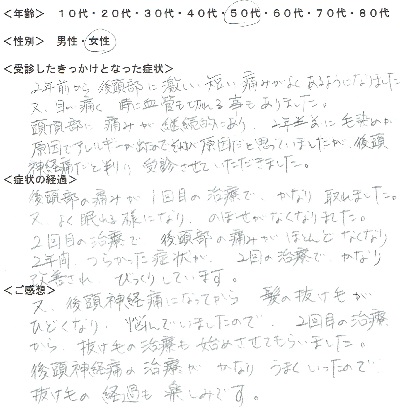 <年齢> 10代・20代・30代・40代・50代・60代・70代・80代
<性別> 男性・女性
<受診したきっかけとなった症状>
2年前から後頭部に激しい短い痛みがよくあるようになりました
又、目が痛く 時に血管も切れる事もありました。
頭頂部に痛みが継続的にあり、2年半前に毛染めが
原因でアレルギーが
原因だと思っていましたが、後頭
神経痛だと判り受診させていただきました。
<症状の経過>
後頭部の痛みが1回目の治療で、かなり取れました。
又、よく眠れる様になり、のぼせがなくなりました。
2回目の治療で 後頭部の痛みがほとんどなくなり
2年間、つらかった症状が、2回の治療で、かなり
改善され びっくりしています。
<ご感想>
又、後頭神経痛になってから 髪の抜け毛が
ひどくなり、悩んでいましたので、2回目の治療
から、抜け毛の治療も始めさせてもらいました。
後頭神経痛の治療が かなり うまくいったので
抜け毛の経過も楽しみです。